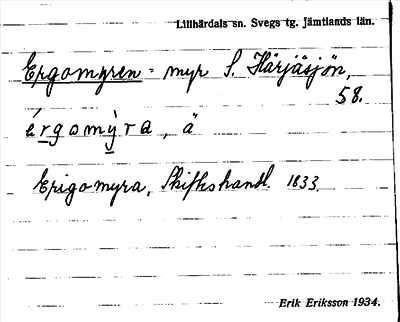 Lillhärdals sn. Svegs tg. Jämtlands län.
Ergomyren = myr S. Härjåsjön,
58.
érgomỳra, ä
Erigomyra, Skifteshandl. 1833
Erik Eriksson 1934.